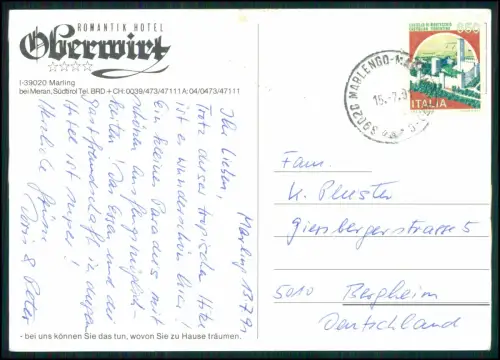 ROMANTIK HOTEL
Oberwirt
I-39020 Marling
bei Meran, Südtirol Tel. BRD + CH: 0039/473/47111 A: 04/0473/47111
Marling 13.7.9
Ihr Lieben,
Trotz dieser tropischen Hitze
ist es wunderschön hier!
Ein kleines Paradies mit
schönen Ausflugsmöglich-
keiten! Das Essen und die
Gastfreundschaft in diesem
Hotel ist super!
Herzliche Grüsse
Doris & Peter
- bei uns können Sie das tun, wovon Sie zu Hause träumen.
ITALIA
39020 MARLENGO-MA
15.7.9
Fam.
K. Pluster
Giersbergerstrasse 5
5010 Bergheim
Deutschland